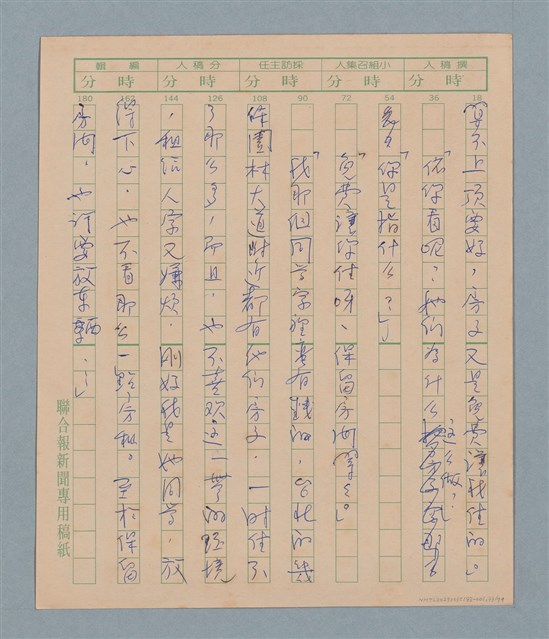 撰稿人 小組召集人 採訪主任 分稿人 編輯
時 分 時 分 時 分 時 分 時 分
18 36 54 72 90 108 126 144 162 180
算不上頂要好，房子又是免費讓我住的。」
「依你看呢？她們為什么這么做？」
「你是指什么？」
「免費讓你住呀、保留房間等等。」
「我那個同學家裡蠻有錢的，台北的幾
條園林大道附近都有他們房子，一時住不
了那么多，而且，也不喜欢這一帶的环境
，租給人家又嫌煩，剛好我是她同學，放
得下心，也不在乎那么一點房租。至於保留
房間，也許要放東西……」
聯合報新聞專用稿紙